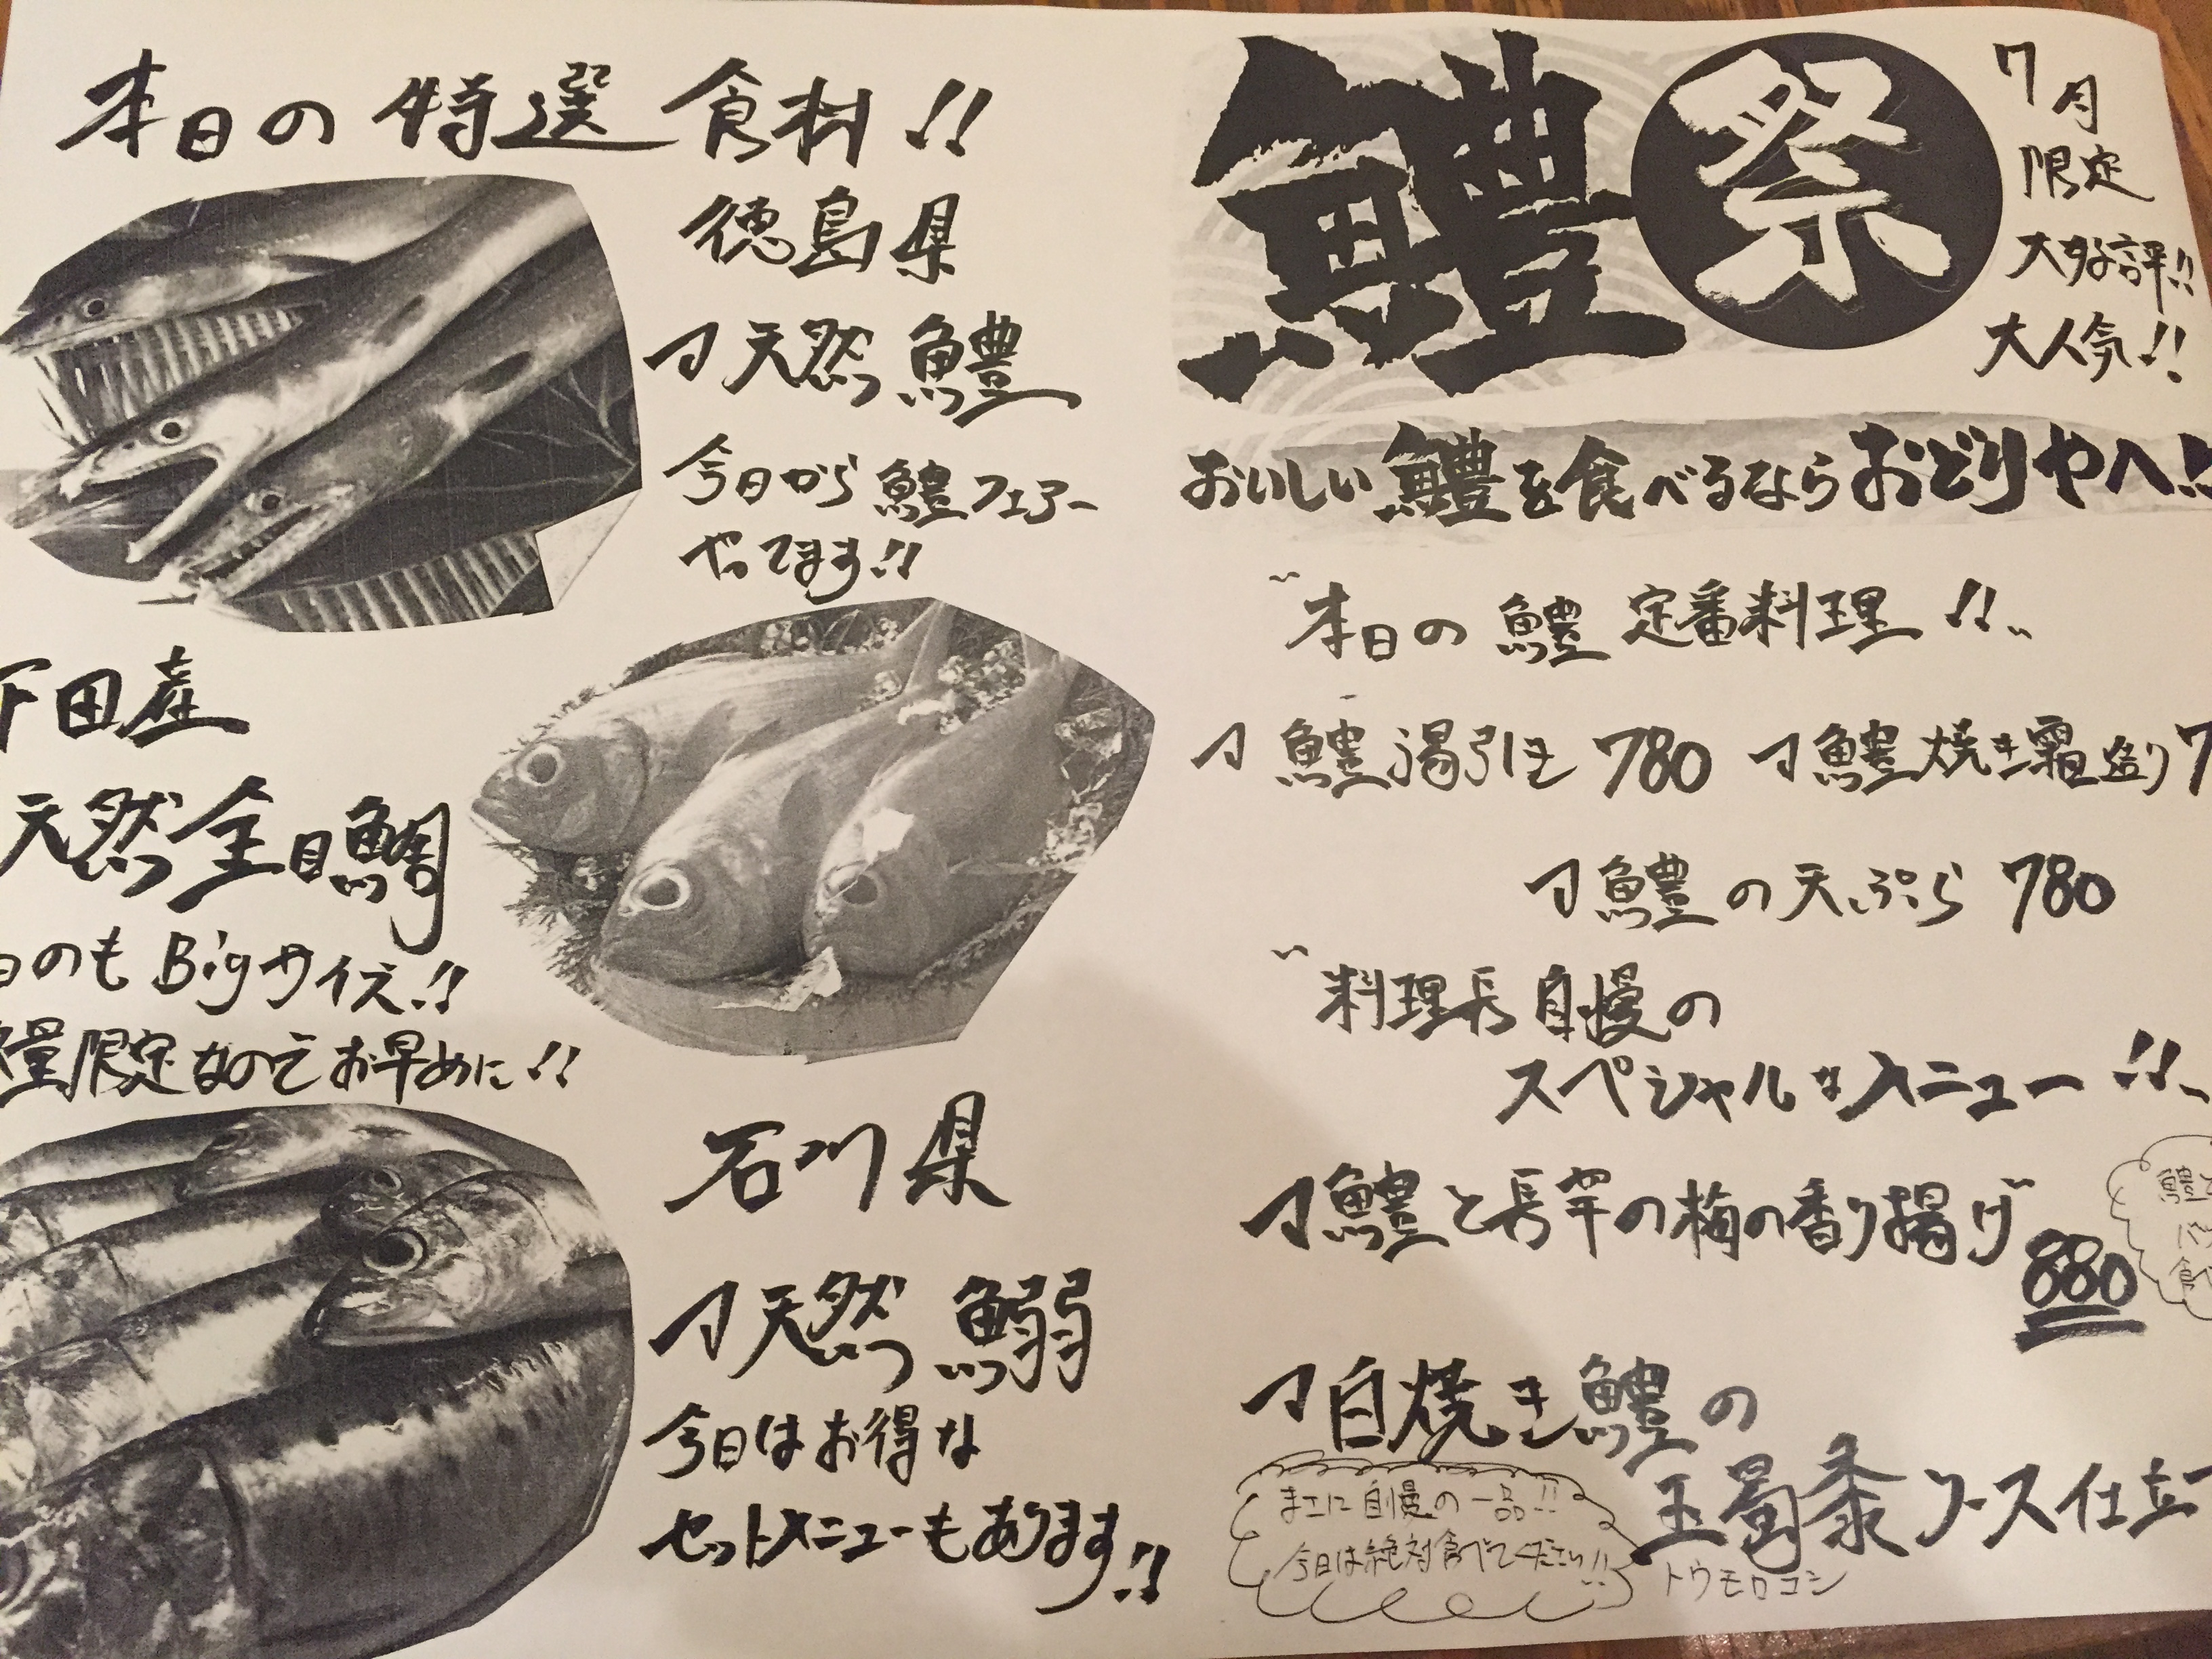 本日の特選食材!!
徳島県
天然鱧
今日から鱧フェアー
やってます!!
下田産
天然金目鯛
日のもBigサイズ!!
量限定なのでお早めに!!
石川県
天然鰯
今日はお得な
セットメニューもあります!!
鱧祭
7月
限定
大好評!!
大人気!!
おいしい鱧を食べるならおどりやへ!!
"本日の鱧定番料理!!"
鱧湯引き 780 鱧焼き霜造り 7
鱧の天ぷら 780
"料理長自慢の
スペシャルなメニュー!!"
鱧と長芋の梅の香り揚げ
880
鱧と
食べ
白焼き鱧の
玉蜀黍ソース仕立て
トウモロコシ
まさに自慢の一品!!
今日は絶対食べてください!!